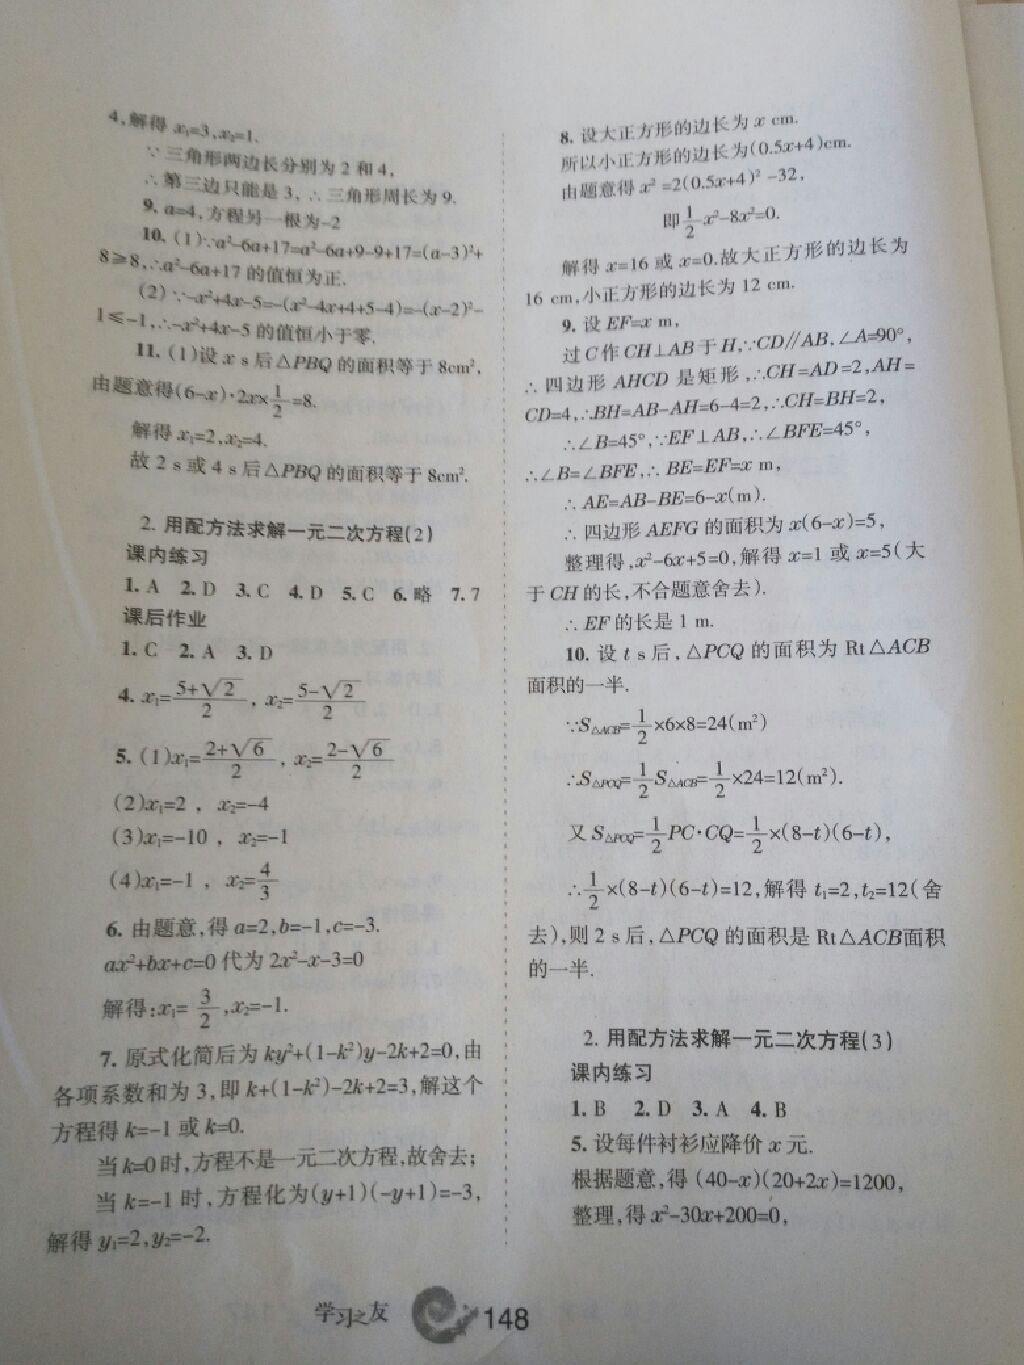 4,解得 x₁=3,x₂=1.
∵三角形两边长分别为 2 和 4,
∴第三边只能是 3, ∴三角形周长为 9.
9. a=4,方程另一根为-2
10. (1)∵a²-6a+17=a²-6a+9-9+17=(a-3)²+
8≥8,∴a²-6a+17 的值恒为正.
(2)∵-x²+4x-5=-(x²-4x+4+5-4)=-(x-2)²-
1≤-1,∴-x²+4x-5 的值恒小于零.
11. (1)设 x s 后△PBQ 的面积等于 8cm²,
由题意得(6-x)·2x×1/2=8.
解得 x₁=2,x₂=4.
故 2 s 或 4 s 后△PBQ 的面积等于 8cm².
2. 用配方法求解一元二次方程(2)
课内练习
1. A 2. D 3. C 4. D 5. C 6. 略 7. 7
课后作业
1. C 2. A 3. D
4. x₁=(5+√2)/2, x₂=(5-√2)/2
5. (1)x₁=(2+√6)/2, x₂=(2-√6)/2
(2)x₁=2, x₂=-4
(3)x₁=-10, x₂=-1
(4)x₁=-1, x₂=4/3
6. 由题意,得 a=2,b=-1,c=-3.
ax²+bx+c=0 代为 2x²-x-3=0
解得:x₁=3/2,x₂=-1.
7. 原式化简后为 ky²+(1-k²)y-2k+2=0,由
各项系数和为 3,即 k+(1-k²)-2k+2=3,解这个
方程得 k=-1 或 k=0.
当 k=0 时,方程不是一元二次方程,故舍去;
当 k=-1 时,方程化为(y+1)(-y+1)=-3,
解得 y₁=2,y₂=-2.
8. 设大正方形的边长为 x cm.
所以小正方形的边长为(0.5x+4)cm.
由题意得 x²=2(0.5x+4)²-32,
即 1/2 x²-8x²=0.
解得 x=16 或 x=0.故大正方形的边长为
16 cm,小正方形的边长为 12 cm.
9. 设 EF=x m,
过 C 作 CH⊥AB 于 H,∵CD∥AB,∠A=90°,
∴四边形 AHCD 是矩形,∴CH=AD=2,AH=
CD=4,∴BH=AB-AH=6-4=2,∴CH=BH=2,
∴∠B=45°,∵EF⊥AB,∴∠BFE=45°,
∴∠B=∠BFE,∴BE=EF=x m,
∴AE=AB-BE=6-x(m).
∴四边形 AEFG 的面积为 x(6-x)=5,
整理得,x²-6x+5=0,解得 x=1 或 x=5(大
于 CH 的长,不合题意舍去).
∴EF 的长是 1 m.
10. 设 t s 后,△PCQ 的面积为 Rt△ACB
面积的一半.
∵S△ACB=1/2×6×8=24(m²)
∴S△PCQ=1/2 S△ACB=1/2×24=12(m²).
又 S△PCQ=1/2 PC·CQ=1/2×(8-t)(6-t),
∴1/2×(8-t)(6-t)=12,解得 t₁=2,t₂=12(舍
去),则 2 s 后,△PCQ 的面积是 Rt△ACB面积
的一半.
2. 用配方法求解一元二次方程(3)
课内练习
1. B 2. D 3. A 4. B
5. 设每件衬衫应降价 x 元.
根据题意,得 (40-x)(20+2x)=1200,
整理,得 x²-30x+200=0,
学习之友 148